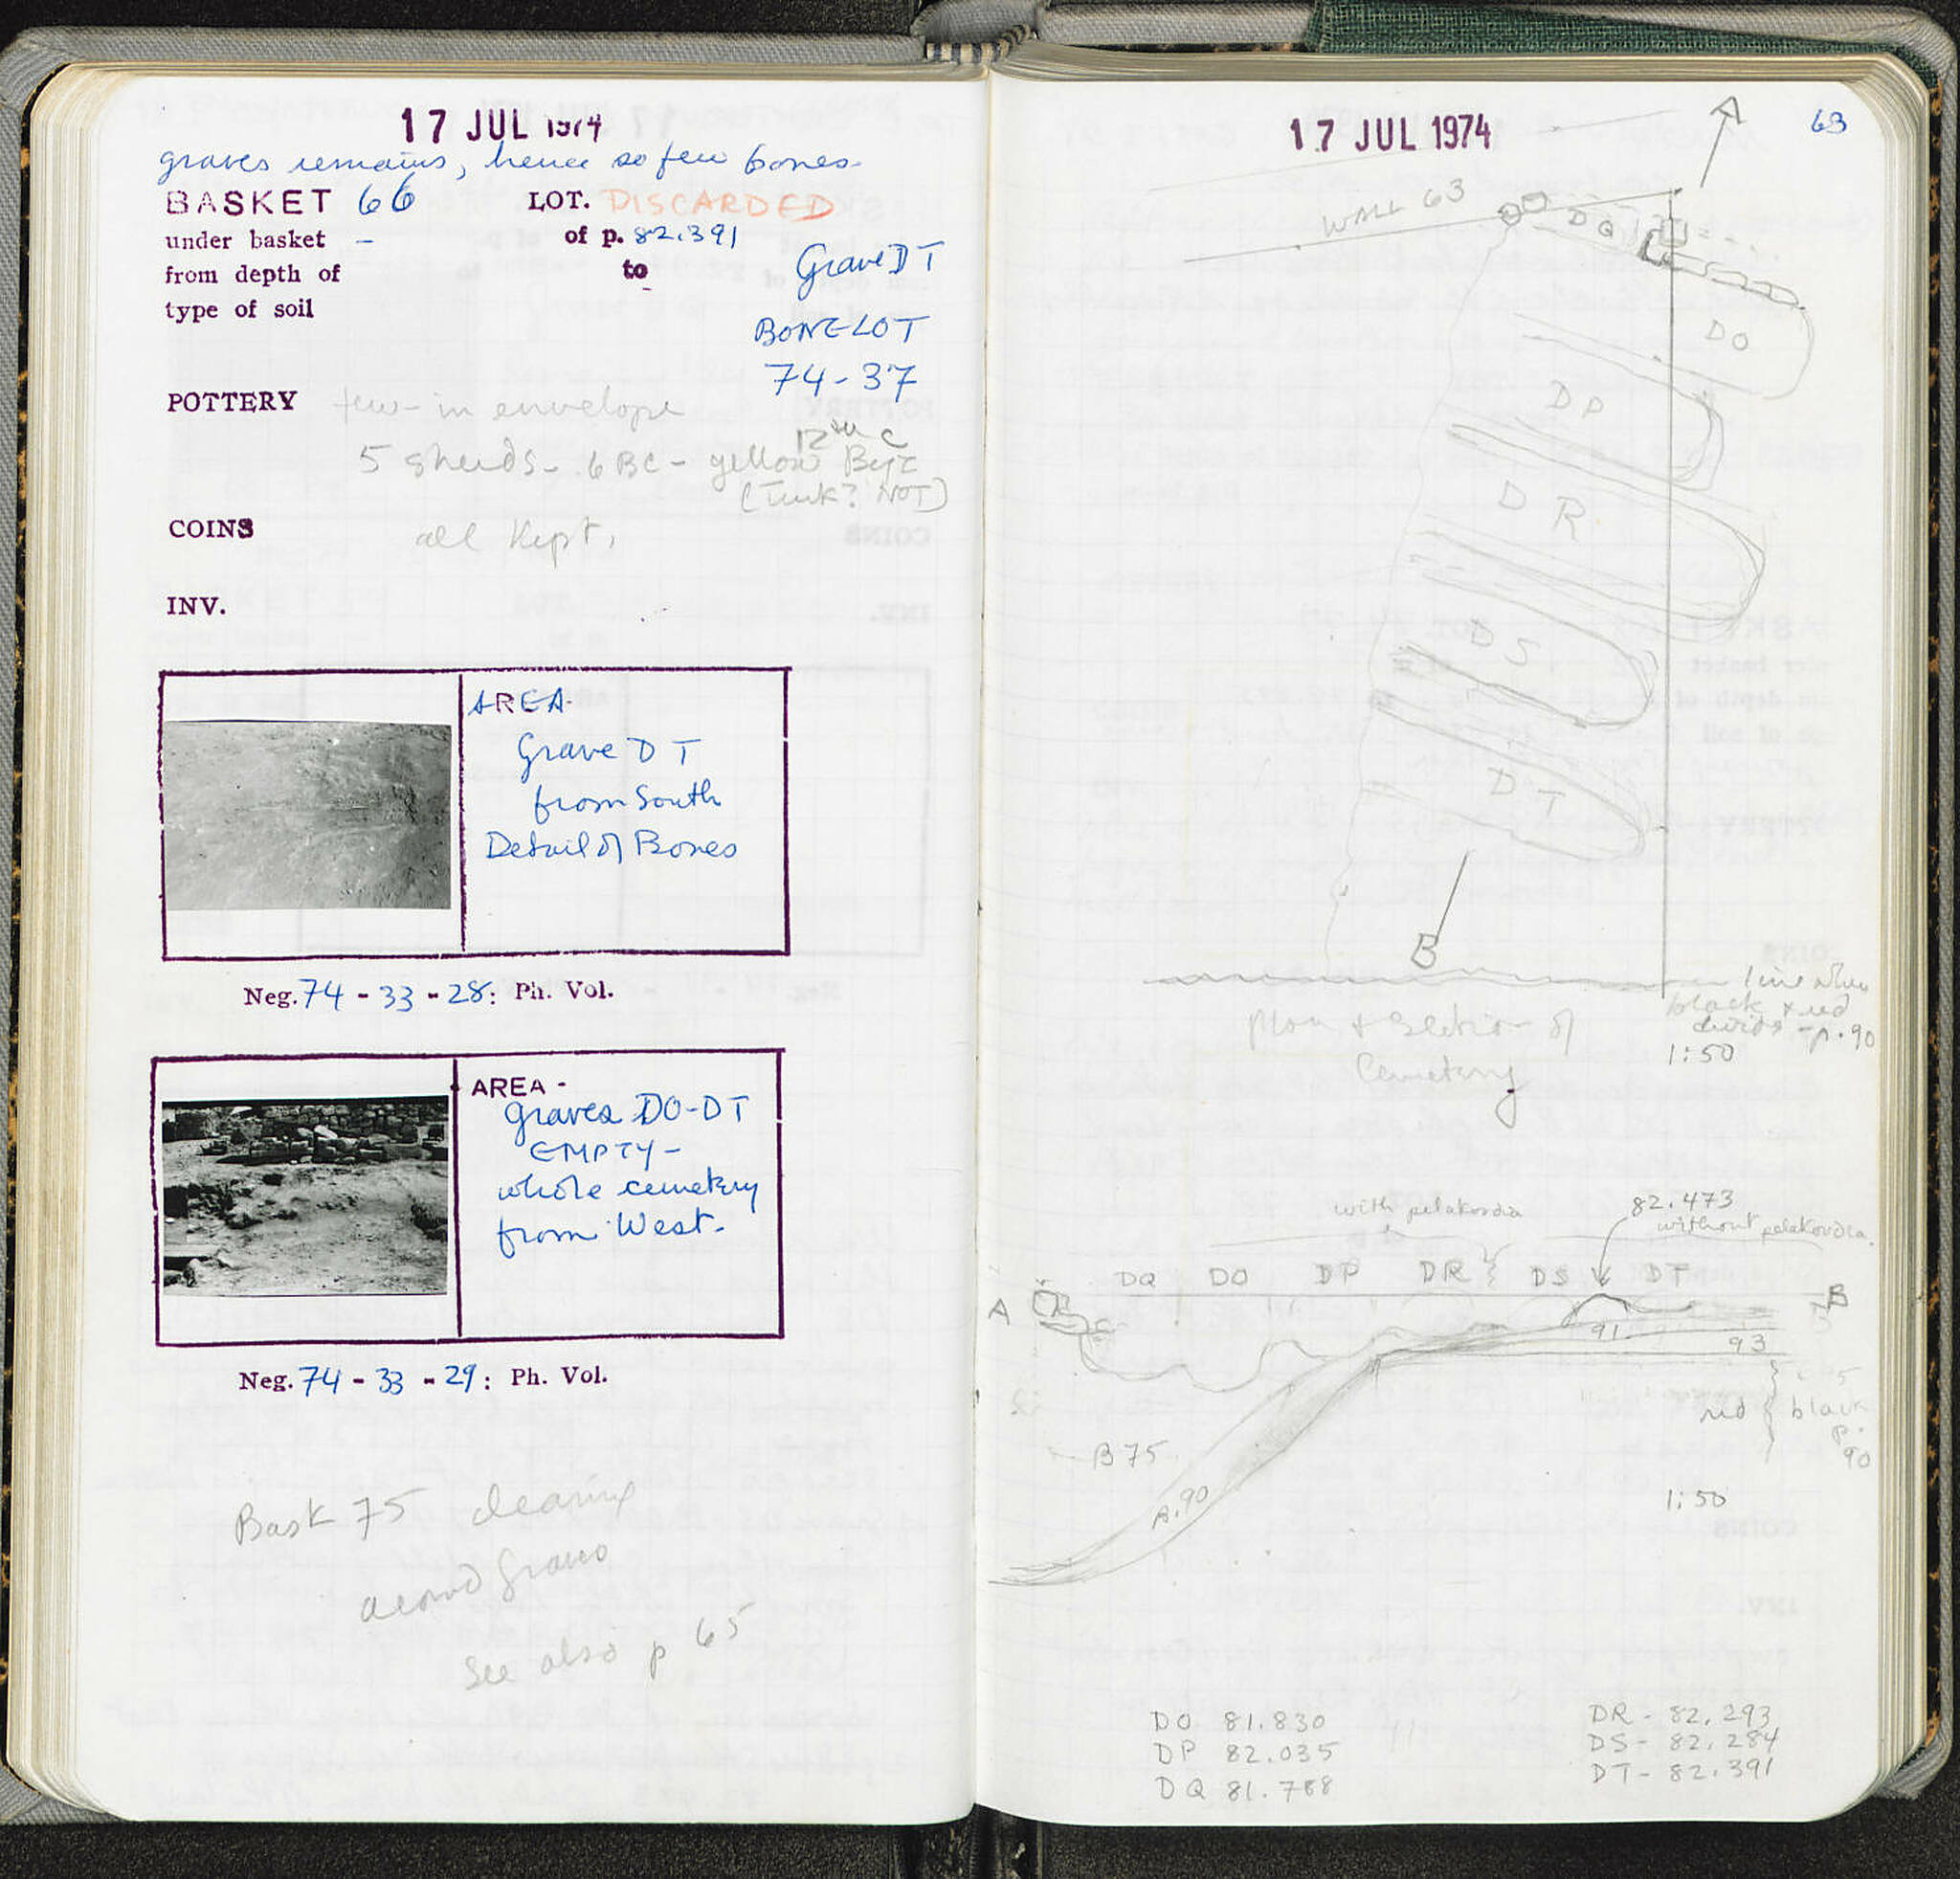 17 JUL 1974
graves remains, hence so few bones.
BASKET 66 LOT. DISCARDED
under basket - of p. 82.391
from depth of to
Grave DT
type of soil
BONE LOT
74-37
POTTERY few - in envelope
12th c
5 sherds - 6 BC - yellow Byz
(Turk? NOT)
COINS all kept.
INV.
AREA
Grave DT
from South
Detail of Bones
Neg. 74 - 33 - 28: Ph. Vol.
AREA -
graves DO-DT
EMPTY -
whole cemetery
from West.
Neg. 74 - 33 - 29: Ph. Vol.
Bask 75 clearing
around graves
see also p 65
17 JUL 1974
63
A
WALL 63
DQ
DO
DP
DR
DS
DT
B
line
black & red
p. 90
1:50
Plan & Section of
Cemetery
with pelakordia
82.473
without pelakordia
DQ DO DP DR DS DT
A B
91
93
red
black
p.
90
B 75
1:50
DO 81.830
DP 82.035
DQ 81.788
DR - 82.293
DS - 82.284
DT - 82.391